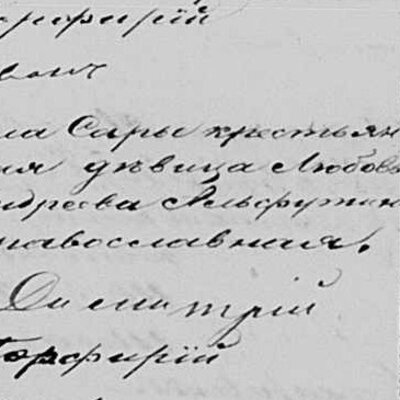 рфирій
вочъ
ла Сары крестьян
ая дѣвица Любовь
ндреева
православная.
Димитрій
Порфирій